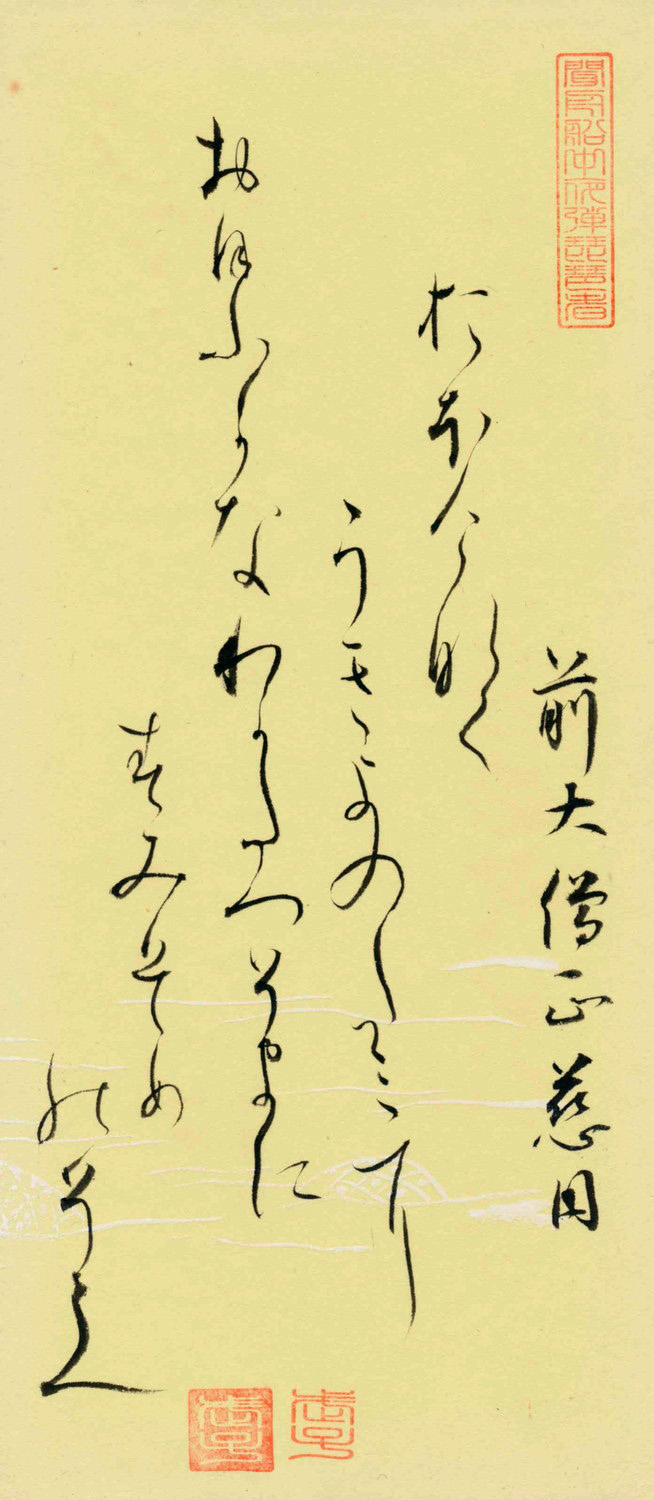 聞舟船中夜彈琵琶者
前大僧正慈円
おほけなく
うきよのたみに
おほふかなわかたつそまに
すみそめ
のそて